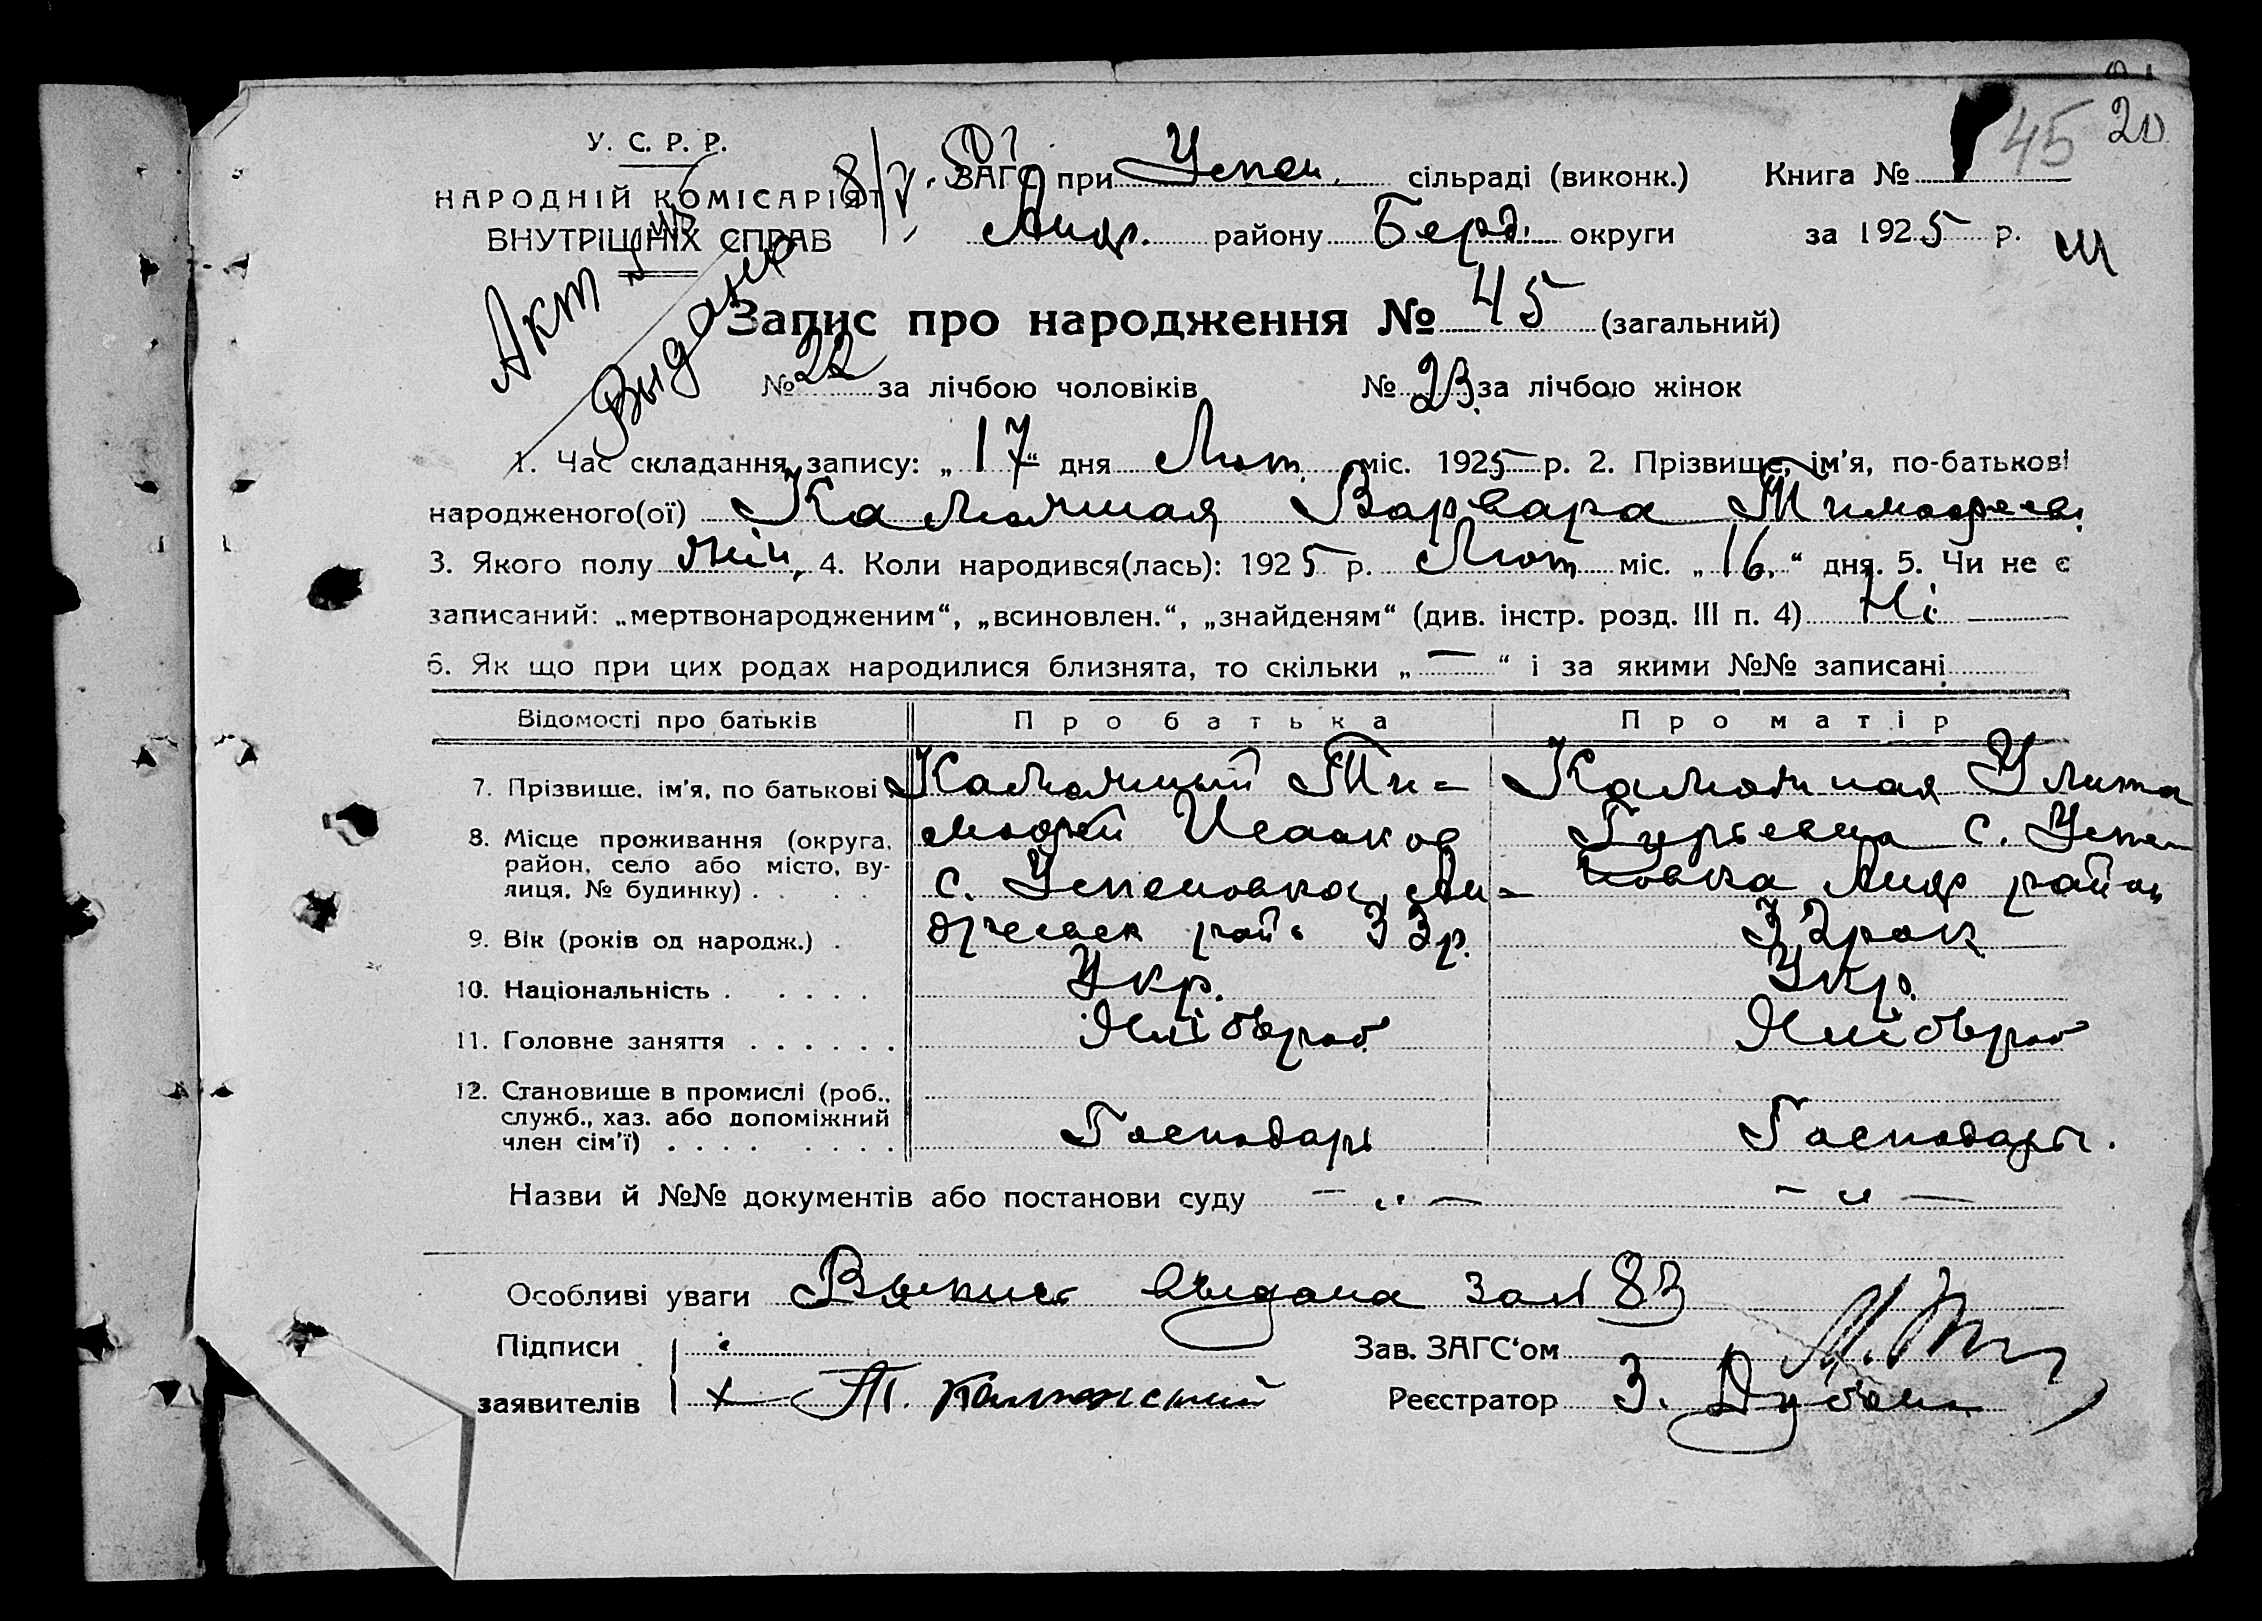 45 20
У. С. Р. Р.
НАРОДНІЙ КОМІСАРІЯТ
ВНУТРІШНІХ СПРАВ
ЗАГС при Успен. сільраді (виконк.) Книга №
Андр. району Берд. округи за 1925 р.
Акт
Выдано
Запис про народження № 45 (загальний)
№ 22 за лічбою чоловіків № 23 за лічбою жінок
1. Час складання запису: „17“ дня Лют. міс. 1925 р. 2. Прізвище, ім'я, по-батькові
народженого(ої) Варвара Тимофеев.
3. Якого полу жін. 4. Коли народився(лась): 1925 р. Лют міс. „16.“ дня. 5. Чи не є
записаний: „мертвонародженим“, „всиновлен.“, „знайденям“ (див. інстр. розд. III п. 4) Ні
6. Як що при цих родах народилися близнята, то скільки „—“ і за якими №№ записані
Відомості про батьків Про батька Про матір
7. Прізвище, ім'я, по батькові Ти= Улита
8. Місце проживання (округа, район, село або місто, вулиця, № будинку) мофей Исааков Гурьевна с. Успе-
с. Успеновка, Ан= новка Андр район
9. Вік (років од народж.) дреевск рай. 33 р. 32 рок
10. Національність Укр. Укр.
11. Головне заняття Хлібороб Хлібороб
12. Становище в промислі (роб.,
служб., хаз. або допоміжний
член сім'ї) Господарь Господарь.
Назви й №№ документів або постанови суду — „ — — „ —
Особливі уваги Выпись выдана за № 83
Підписи Зав. ЗАГС'ом
заявителів Т. Реєстратор З.